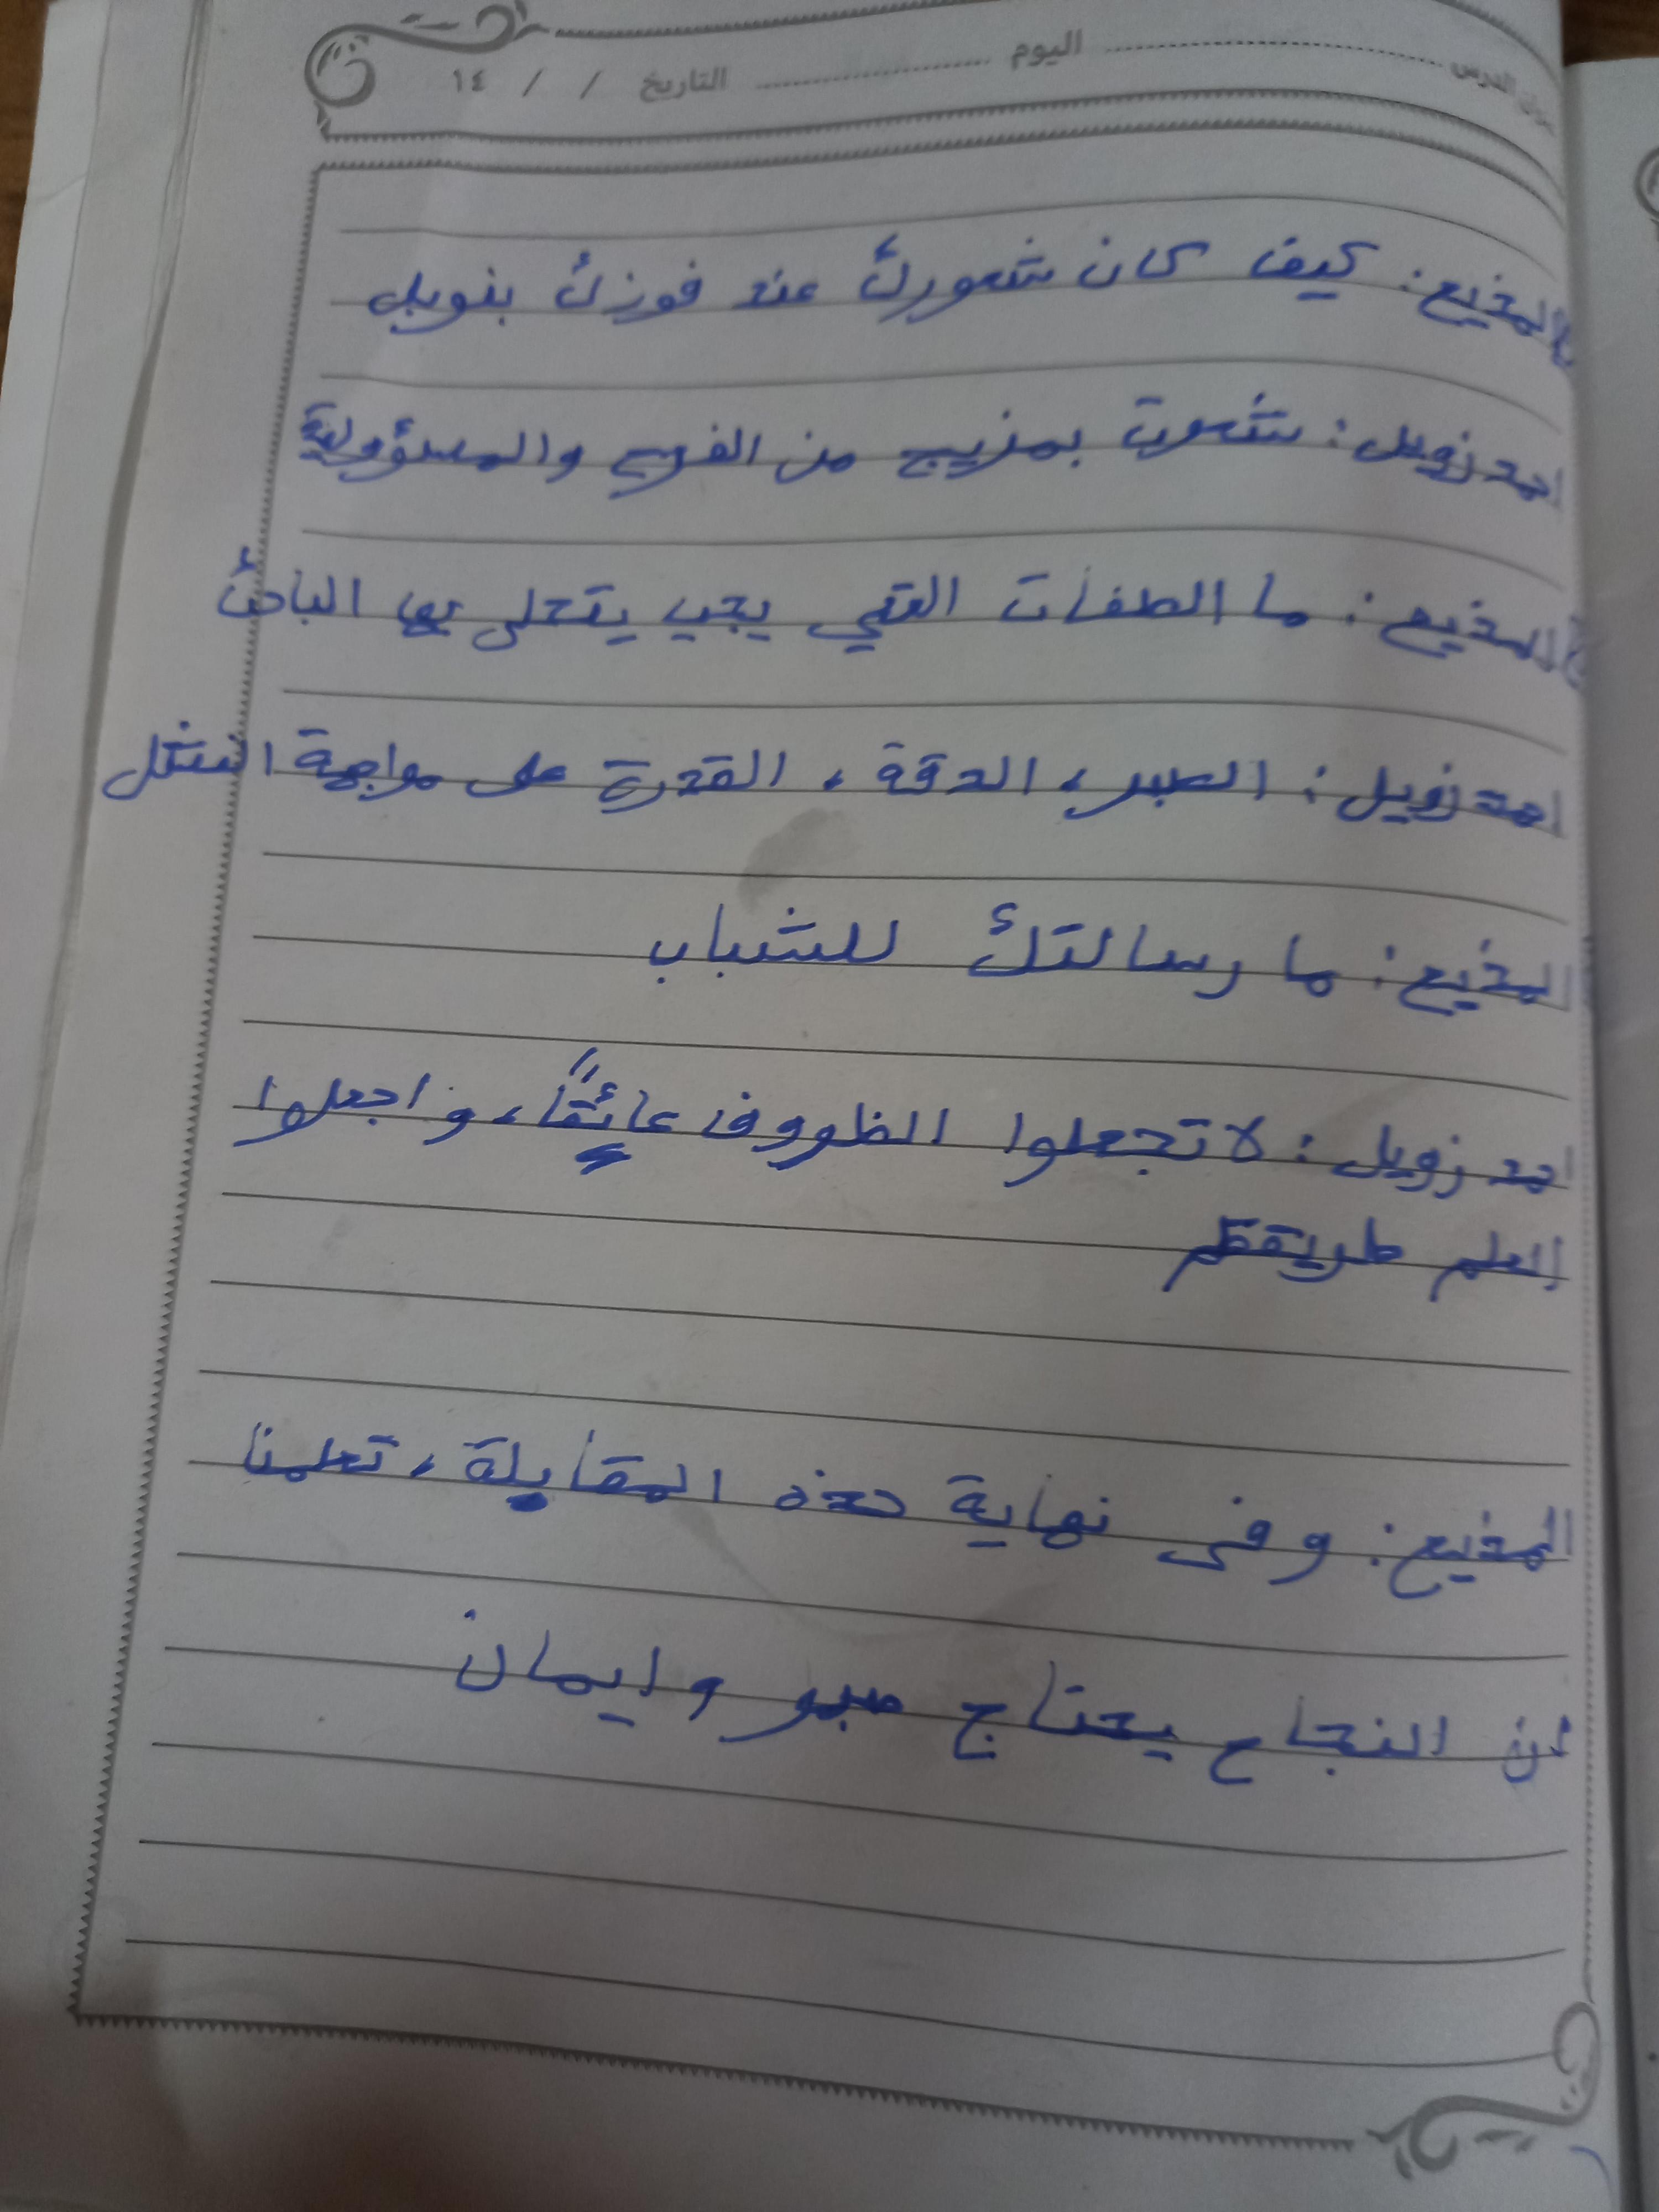 اليوم التاريخ / / ١٤
المذيع: كيف كان شعورك عند فوزك بنوبل
احمد زويل: شعرت بمزيج من الفرح والمسؤولية
المذيع: ما الصفات التي يجب يتحلى بها الباحث
احمد زويل: الصبر، الدقة، القدرة على مواجهة الفشل
المذيع: ما رسالتك للشباب
احمد زويل: لا تجعلوا الظروف عائقًا، واجعلوا
العلم طريقكم
المذيع: وفى نهاية هذه المقابلة، تعلمنا
أن النجاح يحتاج صبر وايمان